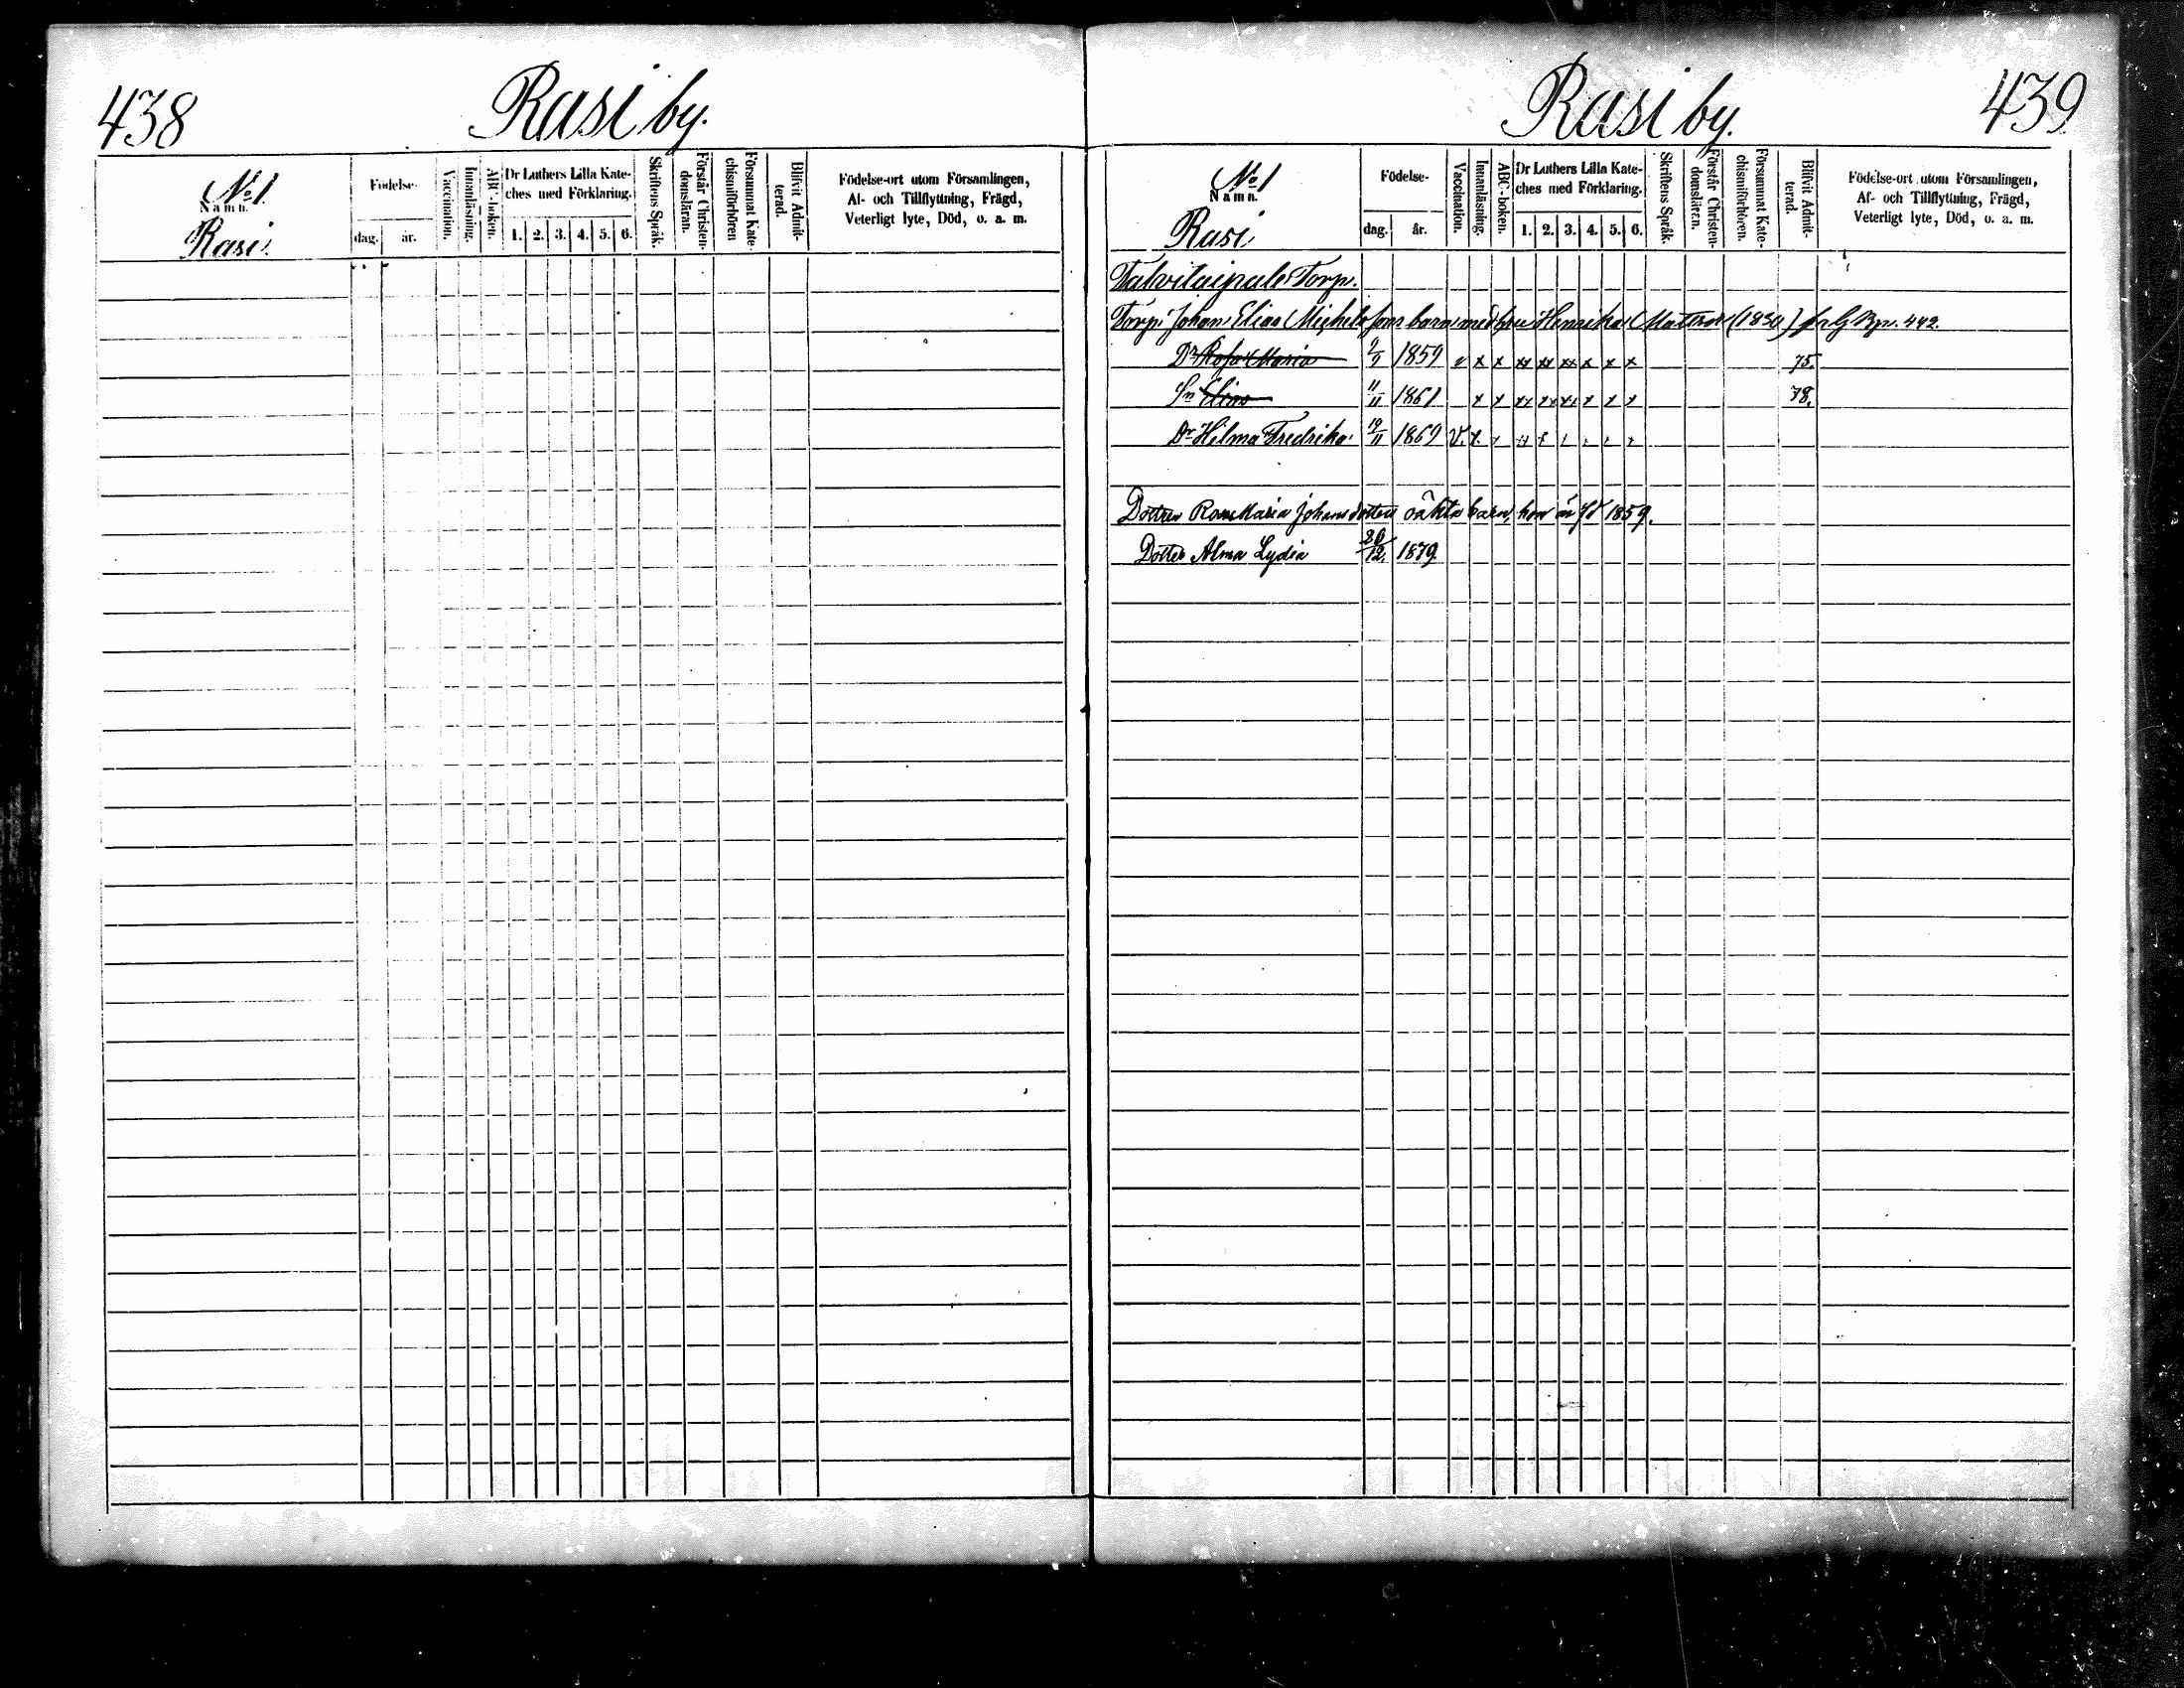 438
Rasi by.
No 1
Namn.
Rasi.
Födelse-
dag. år.
Vaccination.
Innanläsning.
ABC-boken.
Dr Luthers Lilla Kate-
ches med Förklaring.
1. 2. 3. 4. 5. 6.
Skriftens Språk.
Förstår Christen-
domsläran.
Försummat Kate-
chismiförhören
Blifvit Admit-
terad.
Födelse-ort utom Församlingen,
Af- och Tillflyttning, Frägd,
Veterligt lyte, Död, o. a. m.
Rasi by.
439
No 1
Namn.
Rasi
Födelse-
dag. år.
Vaccination.
Innanläsning.
ABC-boken.
Dr Luthers Lilla Kate-
ches med Förklaring.
1. 2. 3. 4. 5. 6.
Skriftens Språk.
Förstår Christen-
domsläran.
Försummat Kate-
chismiförhören.
Blifvit Admit-
terad.
Födelse-ort utom Församlingen,
Af- och Tillflyttning, Frägd,
Veterligt lyte, Död, o. a. m.
Talvitaipale Torp.
Torp. Johan Elias Michelssons barn med hru Henrika Mattsdr (1830) 442.
Dr Rosa Maria 1859 v x x xx xx xx x x x 75.
Sn Elias 11/11 1861 x x xx xx xx x x x 78.
Dr Hilma Fredrika 19/11 1869 V. x
Dottren Rosa Maria Johansdotters oäkta barn, hon är fd 1859.
Dotter Alma Lydia 26/12. 1879.